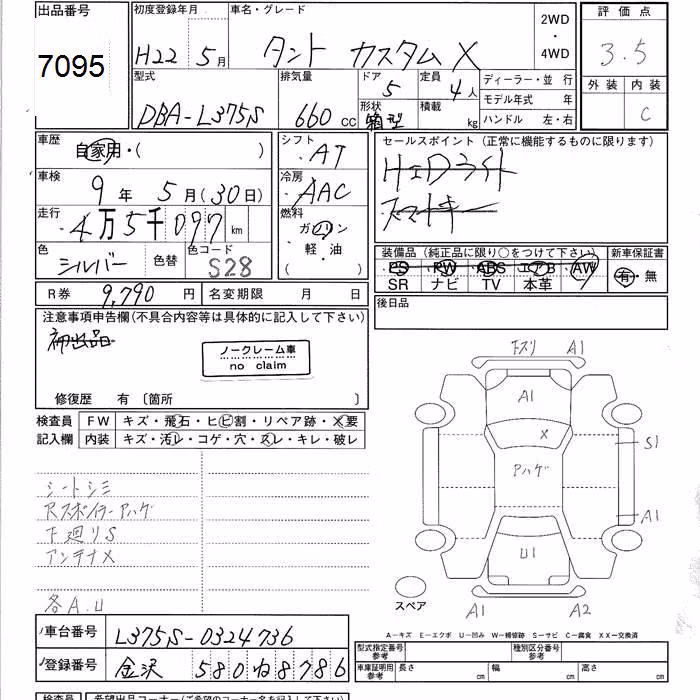 出品番号 初度登録年月 車名・グレード 2WD・4WD 評価点
7095 H22 5月 タント カスタム X 3.5
型式 排気量 ドア 5 定員 4人 ディーラー・並 行 外装 内装
DBA-L375S 660cc 形状 箱型 積載 kg モデル年式 年 C
ハンドル 左・右
車歴 自家用・( ) シフト ・AT セールスポイント (正常に機能するものに限ります)
車検 9年 5月(30日) 冷房 ・AAC HIDライト
スマートキー
走行 ・4万5千097km 燃料 ガソリン・軽・油 ( )
色 シルバー 色替 色コード S28 装備品 (純正品に限り○をつけて下さい) 新車保証書
PS PW ABS エアB AW 有・無
SR ナビ TV 本革
R券 9,790円 名変期限 月 日 後日品
注意事項申告欄(不具合内容等は具体的に記入して下さい)
初出品
ノークレーム車
no claim
修復歴 有 〔箇所 〕
検査員 FW キズ・飛石・ヒビ割・リペア跡・X要
記入欄 内装 キズ・汚レ・コゲ・穴・スレ・キレ・破レ
シートシミ
Rスポイラーアハゲ
下廻りS
アンテナX
各A.U
下ズリ A1
A1
X
S1
アハゲ
A1
U1
スペア A1 A2
A−キズ E−エクボ U−凹み W−補修跡 S−サビ C−腐食 XX−交換済
車台番号 L375S-0324736
登録番号 金沢 580 ね 8786
型式指定番号 参考 種別区分番号 参考
車庫証明用 参考 長さ cm 幅 cm 高さ cm
検査員 希望出品コーナー(ご希望のコーナー名